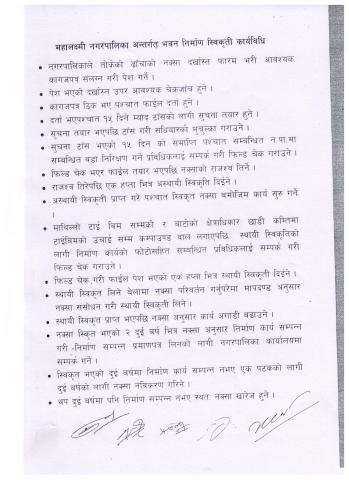 महालक्ष्मी नगरपालिका अन्तर्गत भवन निर्माण स्विकृती कार्यविधि
• नगरपालिकाले तोकेको ढाँचाको नक्सा दर्खास्त फारम भरी आवश्यक
कागजपत्र संलग्न गरी पेश गर्ने ।
• पेश भएको दर्खास्त उपर आवश्यक चेकजांच हुने ।
• कागजपत्र ठिक भए पश्चात फाईल दर्ता हुने ।
• दर्ता भएपश्चात १५ दिने म्याद टाँसको लागी सूचना तयार हुने ।
• सूचना तयार भएपछि टाँस गरी सधियारको मुचुल्का गराउने ।
• सुचना टाँस भएको १५ दिन को समाप्ति पश्चात सम्बन्धित न.पा.मा
सम्बन्धित वडा निरिक्षण गर्ने प्रविधिकलाई सम्पर्क गरी फिल्ड चेक गराउने ।
• फिल्ड चेक भएर फाईल तयार भएपछि नक्साको राजश्व तिर्ने ।
• राजश्व तिरेपछि एक हप्ता भित्र अस्थायी स्विकृति दिईने ।
• अस्थायी स्विकृती प्राप्त गरे पश्चात स्विकृत नक्सा बमोजिम कार्य सुरु गर्ने
।
• माथिल्लो टाई बिम सम्मको र बाटोको क्षेत्राधिकार छाडी कम्तिमा
टाईबिमको उचाई सम्म कम्पाउण्ड वाल लगाएपछि स्थायी स्विकृतिको
लागी निर्माण कार्यको फोटोसहित सम्बन्धित प्रविधिकलाई सम्पर्क गरी
फिल्ड चेक गराउने ।
• फिल्ड चेक गरी फाईल पेश भएको एक हप्ता भित्र स्थायी स्विकृती दिईने ।
• स्थायी स्विकृत लिने बेलामा नक्सा परिवर्तन गर्नुपरेमा मापदण्ड अनुसार
नक्सा संसोधन गरी स्थायी स्विकृती लिने ।
• स्थायी स्विकृत प्राप्त भएपछि नक्सा अनुसार कार्य अगाडी बढाउने ।
• नक्सा स्विकृत भएको २ दुई बर्ष भित्र नक्सा अनुसार निर्माण कार्य सम्पन्न
गरी निर्माण सम्पन्न प्रमाणपत्र लिनको लागी नगरपालिका कार्यालयमा
सम्पर्क गर्ने ।
• स्विकृत भएको दुई बर्षमा निर्माण कार्य सम्पन्न नभए एक पटकको लागी
दुई बर्षको लागी नक्सा नबिकरण गरिने ।
• थप दुई बर्षमा पनि निर्माण सम्पन्न नभए स्वतः नक्सा खारेज हुने ।